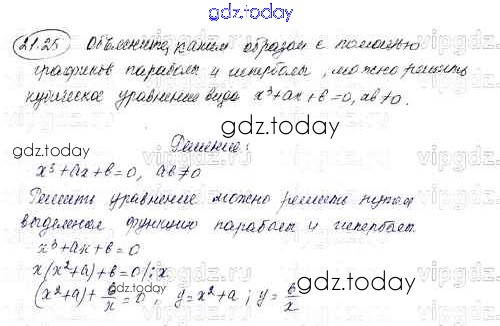 gdz.today
21.25 Объясните, каким образом с помощью
графиков параболы и гиперболы, можно решить
кубическое уравнение вида x³+ax+b=0, ab≠0.
gdz.today
Решение:
x³+ax+b=0, ab≠0
Решить уравнение можно решить путем
выделения функции парабол и гипербол
x³+ax+b=0
x(x²+a)+b=0 /:x
(x²+a)+b/x=0, y=x²+a; y=b/x
gdz.today
gdz.today